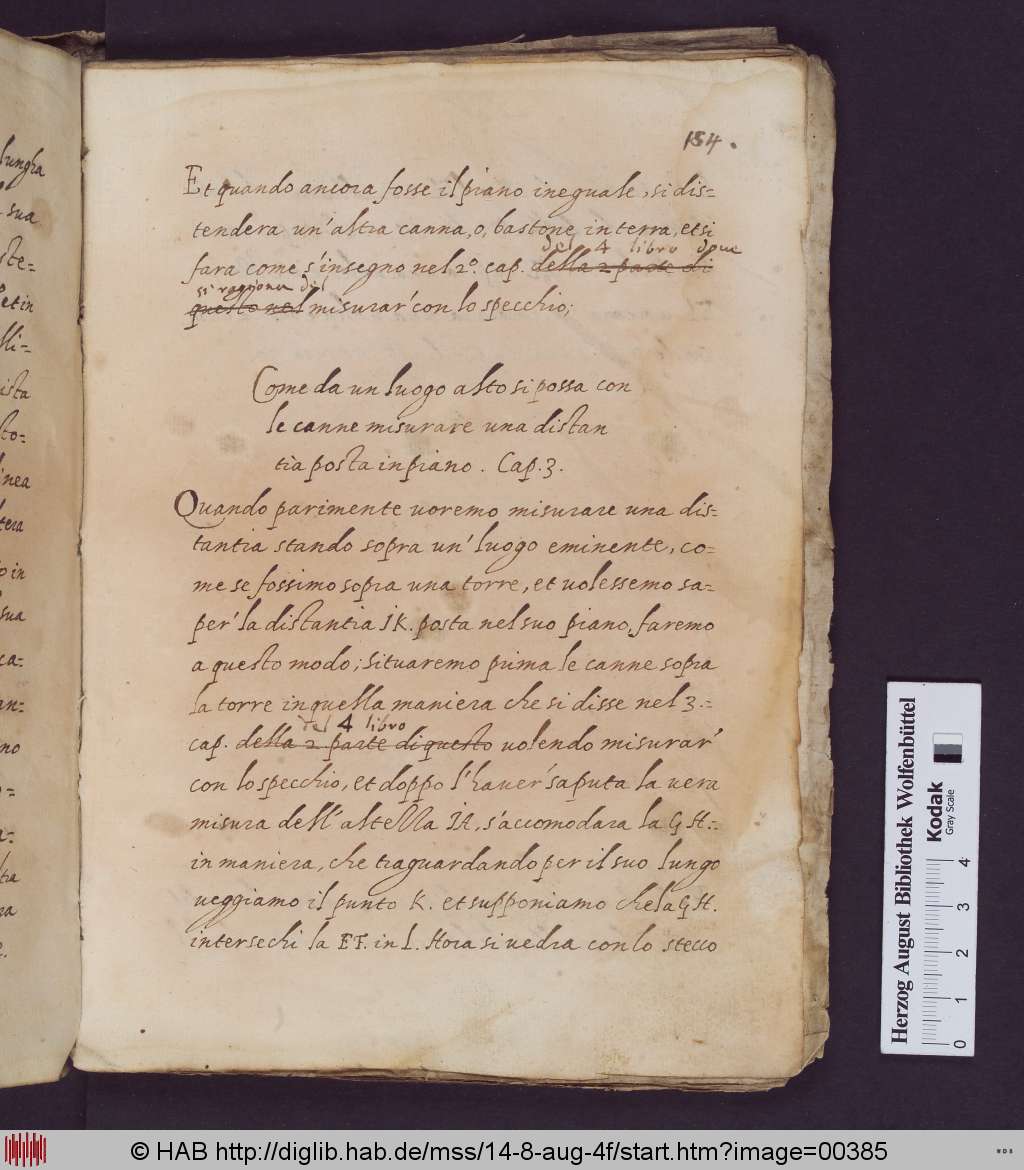 184.
Et quando ancora fosse il piano ineguale, si dis=
tendera un'altra canna, o, bastone in terra, et si
del 4 libro doue
fara come s'insegno nel 2º. cap. della 2 parte di
si raggiona del
questo nel misurar' con lo specchio;
Come da un luogo alto si possa con
le canne misurare una distan
tia posta in piano. Cap. 3.
Quando parimente uoremo misurare una dis=
tantia stando sopra un' luogo eminente, co=
me se fossimo sopra una torre, et uolessemo sa=
per' la distantia IK. posta nel suo piano, faremo
a questo modo; situaremo prima le canne sopra
la torre in quella maniera che si disse nel 3.=
del 4 libro
cap. della 2 parte di questo uolendo misurar'
con lo specchio, et doppo l'hauer' saputa la uera
misura dell' altezza IA, s'accomodara la GH.=
in maniera, che traguardando per il suo lungo
ueggiamo il punto K. et supponiamo che la GH.
intersechi la EF. in L. Hora si uedra con lo stecco
lungha
sua
ste=
et in
lli=
ista
sto=
linea
tera
o in
sua
ca=
an=
no
a=
ta
ra
Herzog August Bibliothek Wolfenbüttel
Kodak
Gray Scale
0 1 2 3 4
© HAB http://diglib.hab.de/mss/14-8-aug-4f/start.htm?image=00385